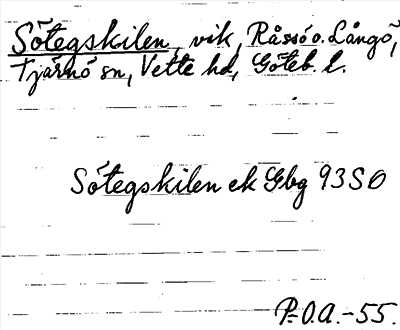 Sötegskilen, vik, Råssö o. Långö,
Tjärnö sn, Vette hd, Göteb. l.
Sötegskilen ek Gbg 93 SO
P-O.A.-55.